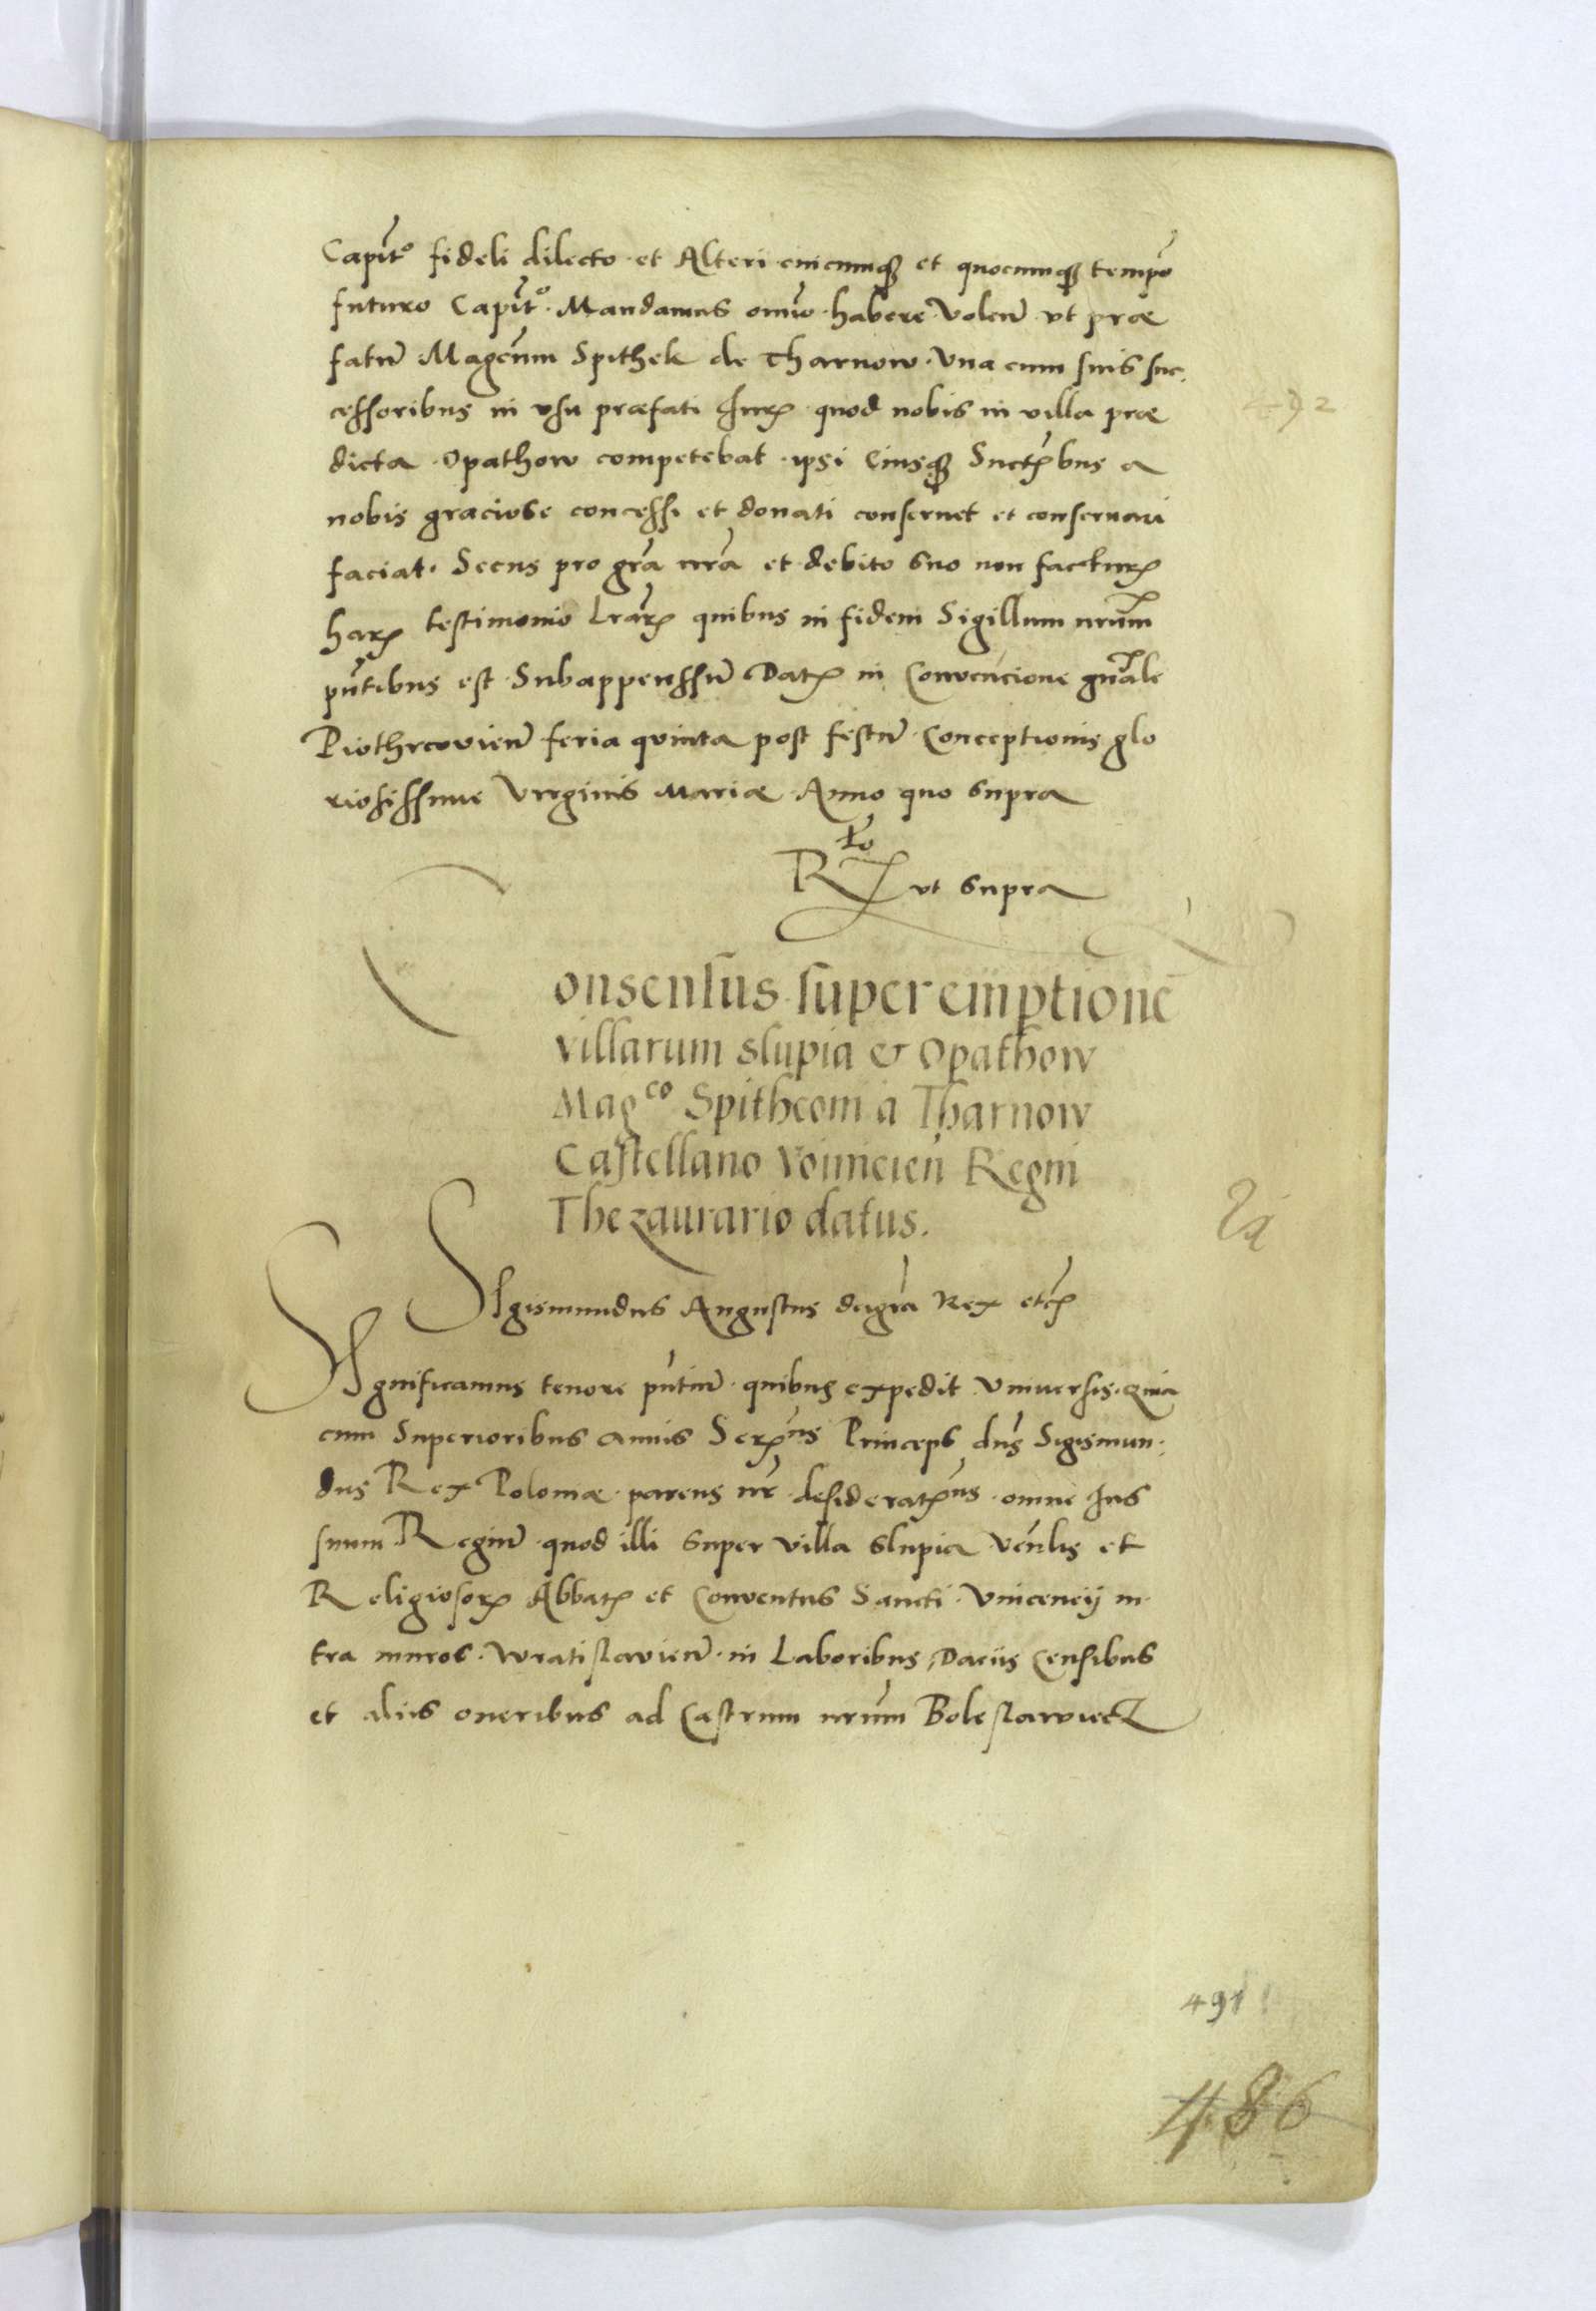 Capit° fideli dilecto et Alteri cuicumq3 et quocumq3 tempo
futuro Capit°. Mandamus omīo habere Volen̄ vt præ
fatū Magcum Spithek de Tharnow. Vna cum suis suc.
cessoribus in vsu præfati Juris quod nobis in villa præ
dicta Opathow competebat ipsi Eiusq3 Suctribus a
nobis graciose concessi et donati conseruet et conseruari
faciat. Secus pro grā nrā et debito suo non factur
har testimonio Lrār quibus in fidem Sigillum nrūm
pñtibus est Subappenssū Dat in Convencione gnāle
Piothrcovien̄ feria quinta post festū Conceptionis glo
riosissime Virginis Mariæ Anno quo supra
R to vt supra
492
Consensus super emptionē
villarum slupia & Opathow
Mag co Spithconi à Tharnow
Castellano Voinicien̄ Regni
Thezaurario datus.
Sigismundus Augustus dei grā Rex etc
Significamus tenore pñtiū quibus expedit Vniuersis. Quia
cum Superioribus annis Ser mus Princeps dns Sigismun:
dus Rex Poloniæ parens nr desiderat mus omne Jus
suum Regiū quod illi super villa slupia Venlis et
Religiosor Abbatis et Conventus Sancti Vincencij in
tra muros Wratislavien̄ in Laboribus, Daciis Censibus
et aliis oneribus ad Castrum nrūm Boleslawiecz
491
486